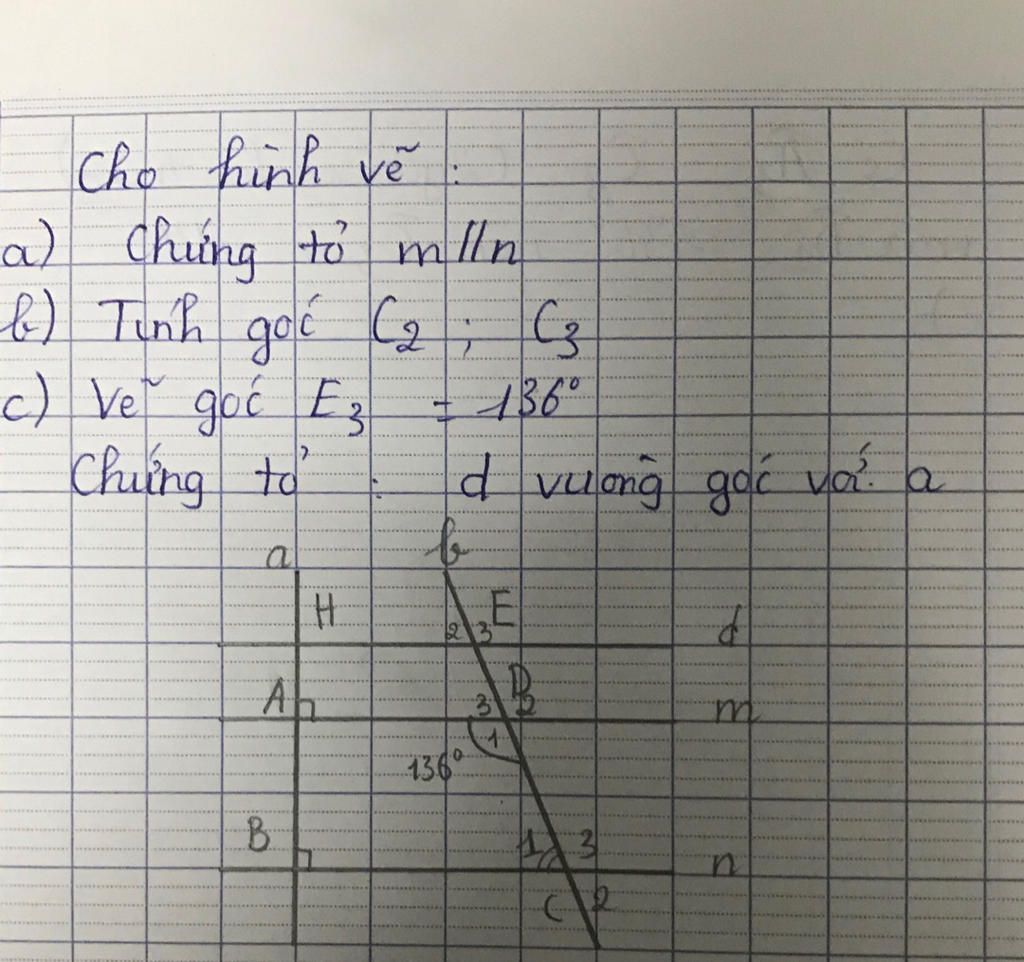 Cho hình vẽ :
a) Chứng tỏ m//n
b) Tính góc C2 ; C3
c) Vẽ góc E3 = 136°
Chứng tỏ : d vuông góc với a
a b
H E
2 3 d
A 3 D 2 m
1
136°
B 1 3 n
C 2